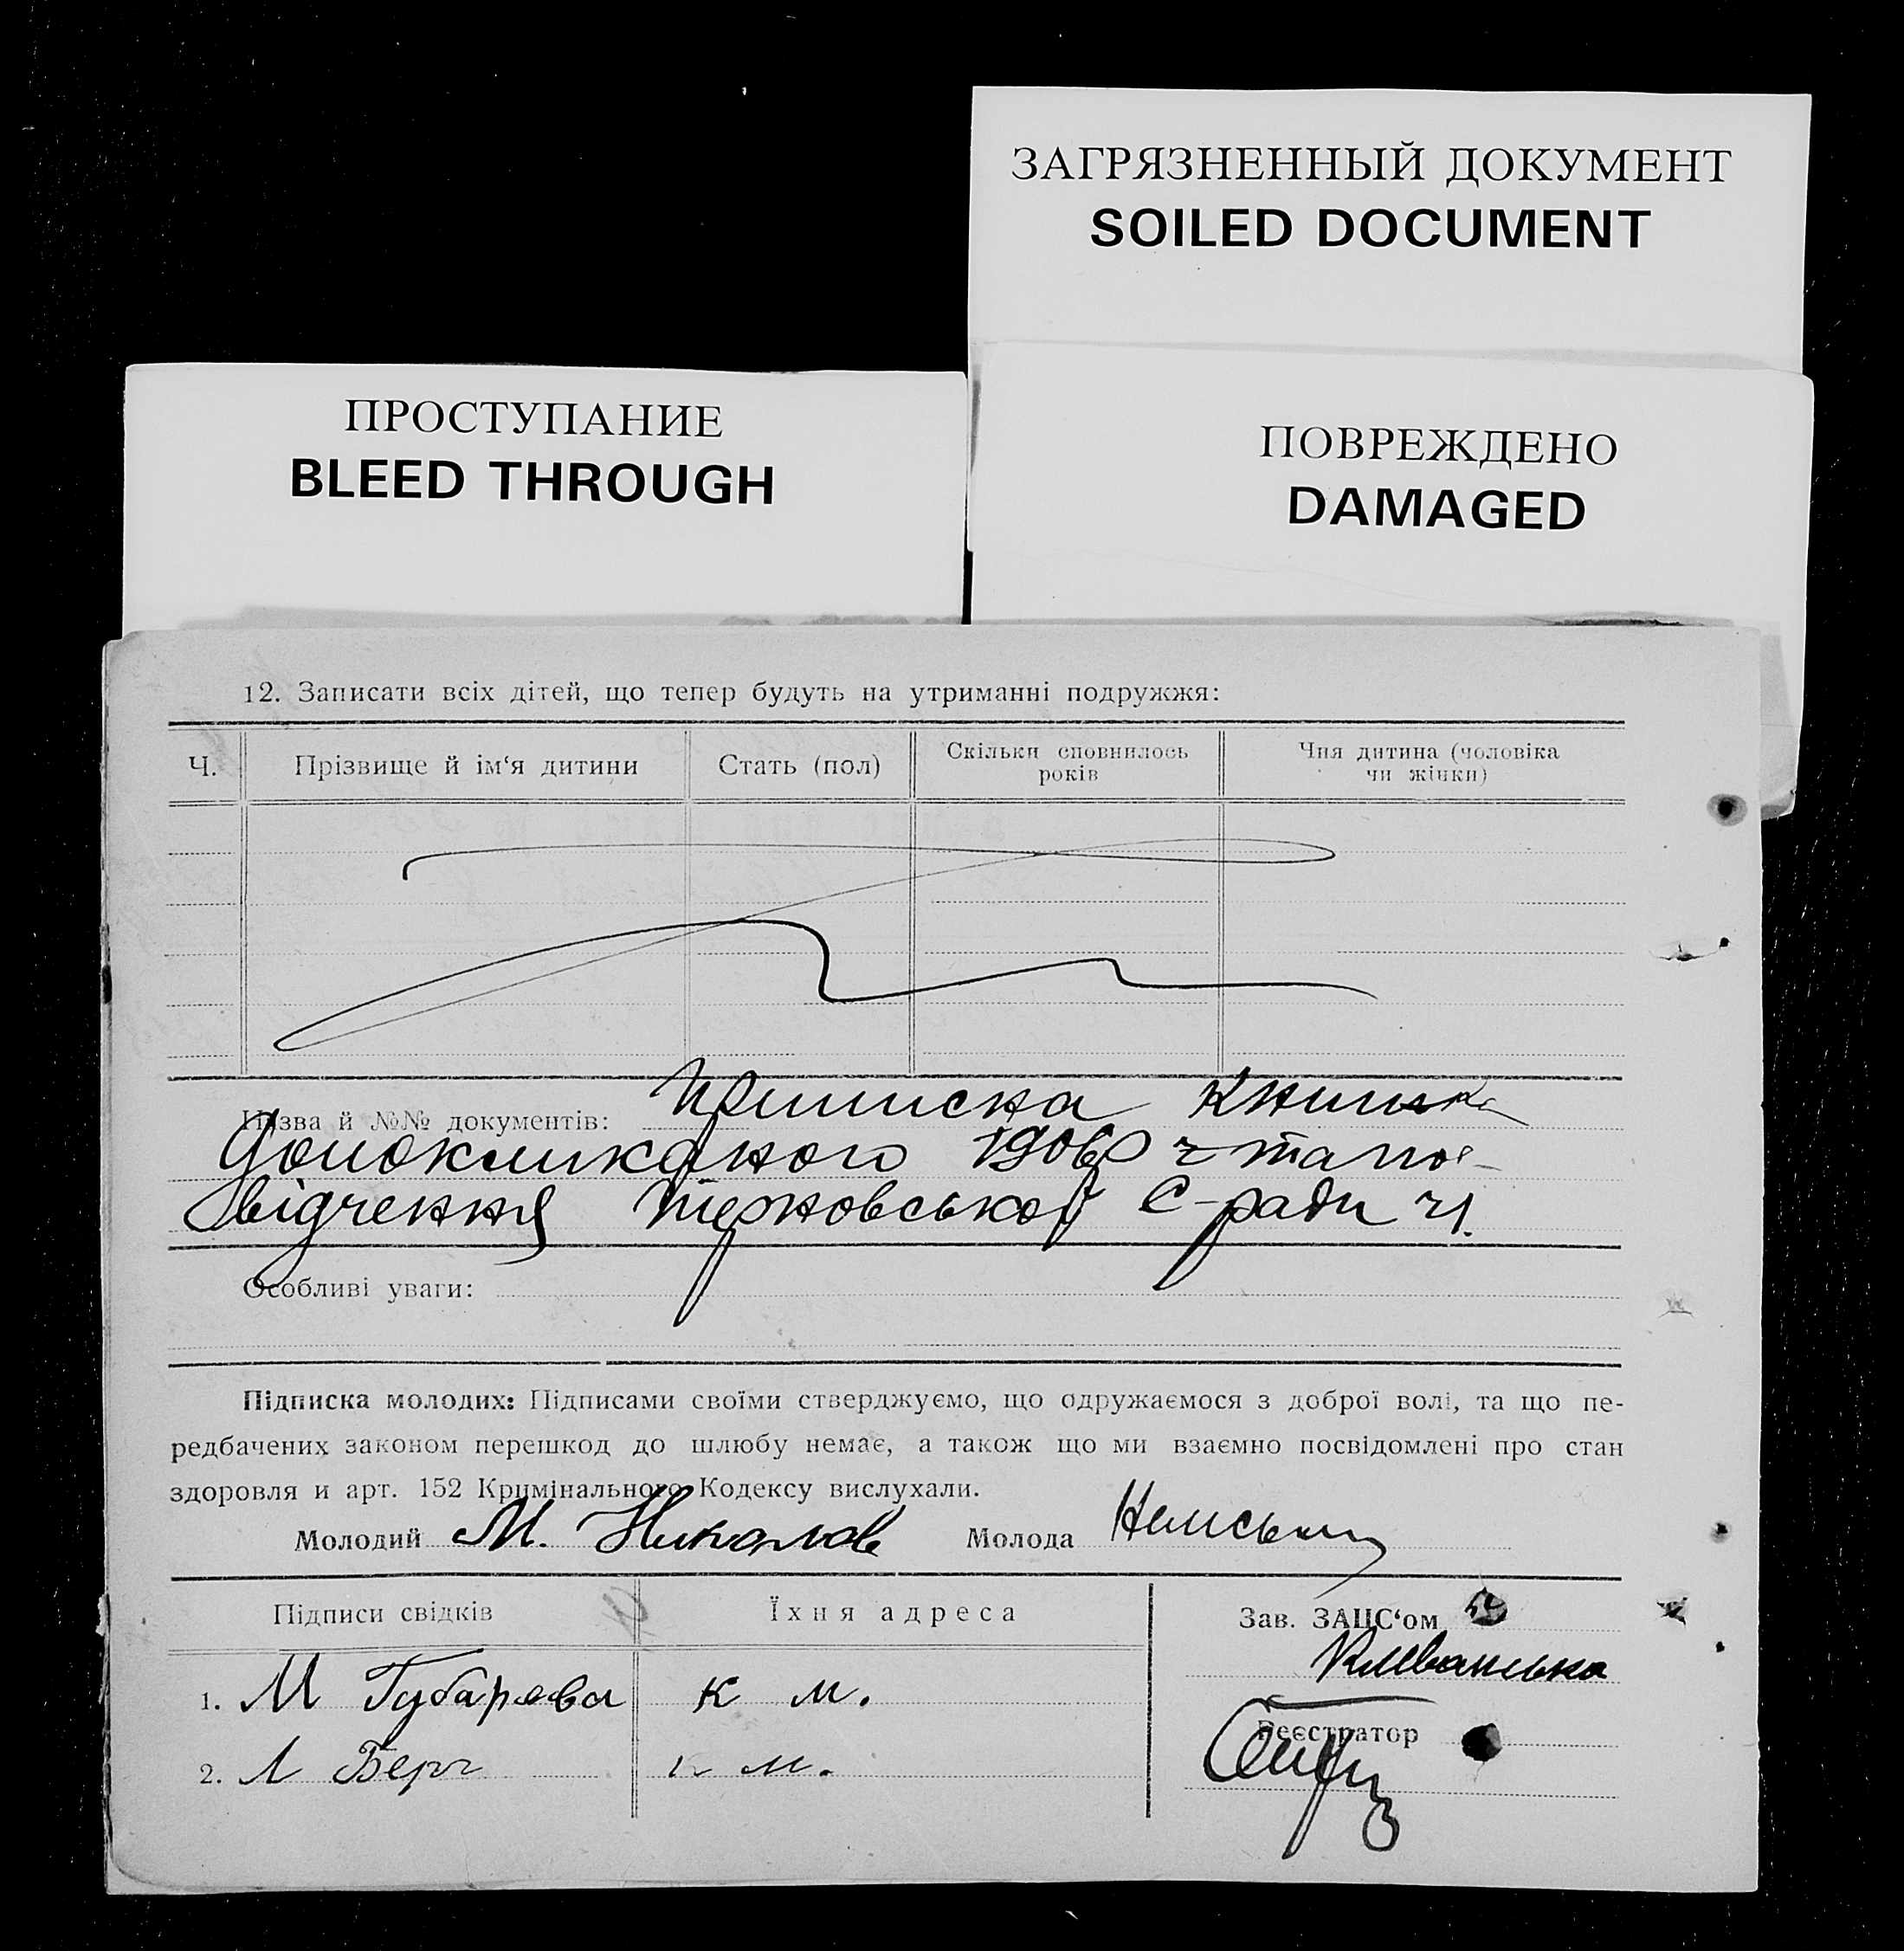 ЗАГРЯЗНЕННЫЙ ДОКУМЕНТ
SOILED DOCUMENT
ПРОСТУПАНИЕ
BLEED THROUGH
ПОВРЕЖДЕНО
DAMAGED
12. Записати всіх дітей, що тепер будуть на утриманні подружжя:
Ч.
Прізвище й ім‘я дитини
Стать (пол)
Скільки сповнилось
років
Чия дитина (чоловіка
чи жінки)
Назва й №№ документів: Приписна книжка
допокликаного 1906 р та
відчення Терновської С-ради
Особливі уваги:
Підписка молодих: Підписами своїми стверджуємо, що одружаємося з доброї волі, та що пе-
редбачених законом перешкод до шлюбу немає, а також що ми взаємно посвідомлені про стан
здоровля и арт. 152 Кримінального Кодексу вислухали.
Молодий М. Николов Молода
Підписи свідків
Їхня адреса
Зав. ЗАЦС‘ом
1. М Губарева к м.
Реєстратор
2. Л Берг к м.